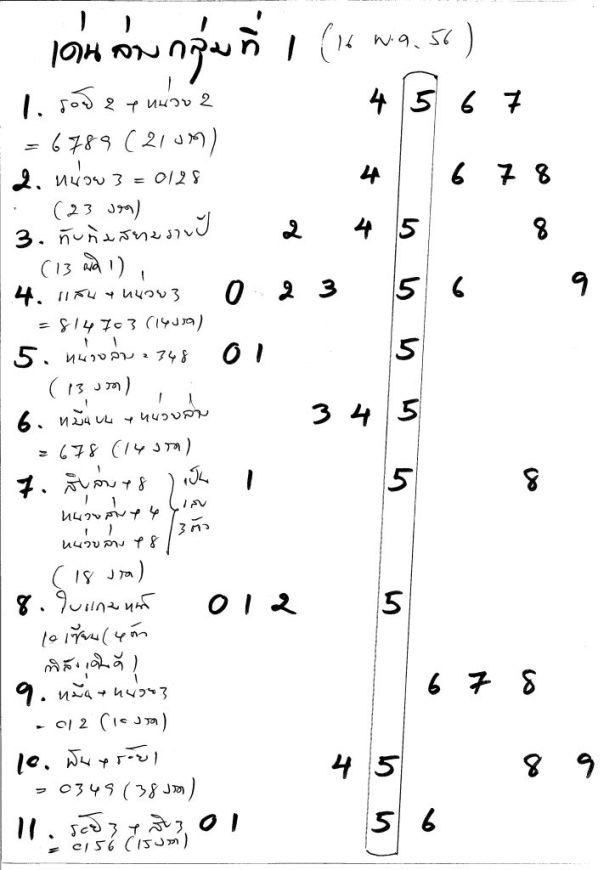 เด่นล่างกลุ่มที่ 1 (16 พ.ค. 56)
1. ร้อย 2 + หน่วย 2 4 5 6 7
= 6789 (21 งวด)
2. หน่วย 3 = 0128 4 6 7 8
(23 งวด)
3. ทับทิมสยามรายปี 2 4 5 8
(13 ผิด 1)
4. แสน + หน่วย 3 0 2 3 5 6 9
= 814703 (14 งวด)
5. หน่วยล่าง = 348 0 1 5
(13 งวด)
6. หมื่นบน + หน่วยล่าง 3 4 5
= 678 (14 งวด)
7. สิบล่าง + 8 เป็น 1 5 8
หน่วยล่าง + 4 เลข
หน่วยล่าง + 8 3 ตัว
(18 งวด)
8. ใบแถมหน้า 0 1 2 5
10 เซียน (4 ตัว
9. หมื่น + หน่วย 3 6 7 8
= 012 (10 งวด)
10. พัน + ร้อย 1 4 5 8 9
= 0349 (38 งวด)
11. ร้อย 3 + สิบ 3 0 1 5 6
= 0156 (15 งวด)